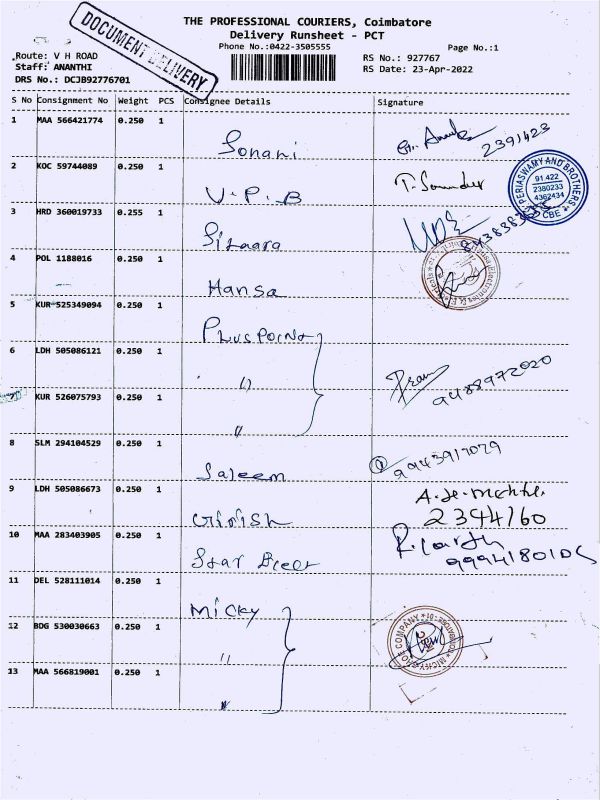 THE PROFESSIONAL COURIERS, Coimbatore
Delivery Runsheet - PCT
DOCUMENT DELIVERY
Phone No.:0422-3505555 Page No.:1
Route: V H ROAD RS No.: 927767
Staff: ANANTHI RS Date: 23-Apr-2022
DRS No.: DCJB92776701
S No Consignment No Weight PCS Consignee Details Signature
1 MAA 566421774 0.250 1
Sonani 2391423
2 KOC 59744089 0.250 1
V.P.B T. Sounder
PERIASWAMY AND BROTHERS
91 422
2380233
4362434
CBE
3 HRD 360019733 0.255 1
Sitaara
4 POL 1188016 0.250 1
Hansa
5 KUR 525349094 0.250 1
PlusPoint
6 LDH 505086121 0.250 1
"
9488972020
KUR 526075793 0.250 1
"
8 SLM 294104529 0.250 1
Saleem
9 LDH 505086673 0.250 1
Girish 2394160
10 MAA 283403905 0.250 1
Star
11 DEL 528111014 0.250 1
Micky
12 BDG 530030663 0.250 1
"
13 MAA 566819001 0.250 1
"